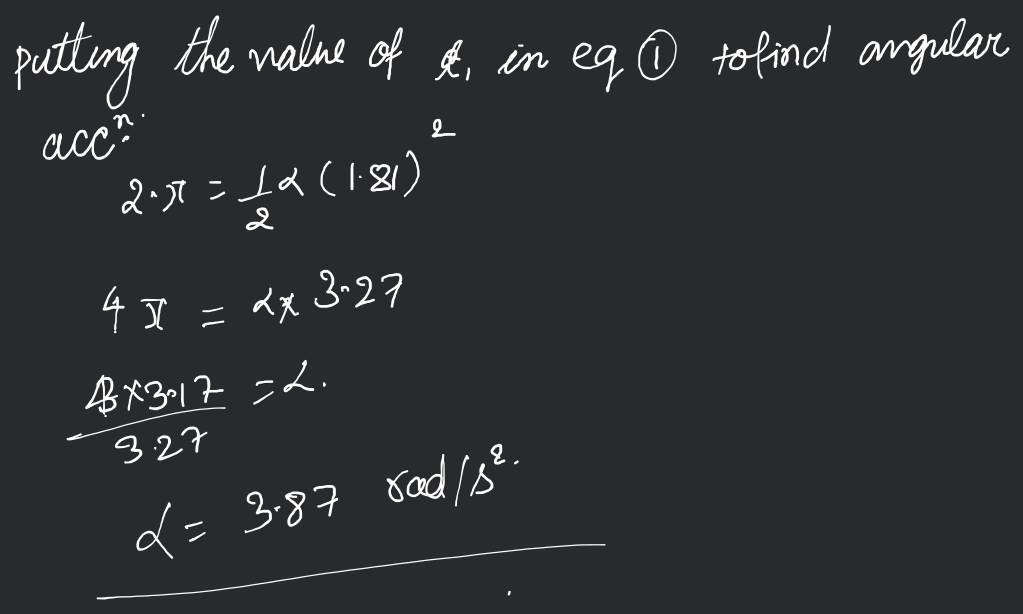 putting the value of t, in eq ① to find angular
accⁿ.
2·π = 1/2 α (1.81)²
4π = α x 3.27
4x3.17/3.27 = α.
α = 3.87 rad/s².